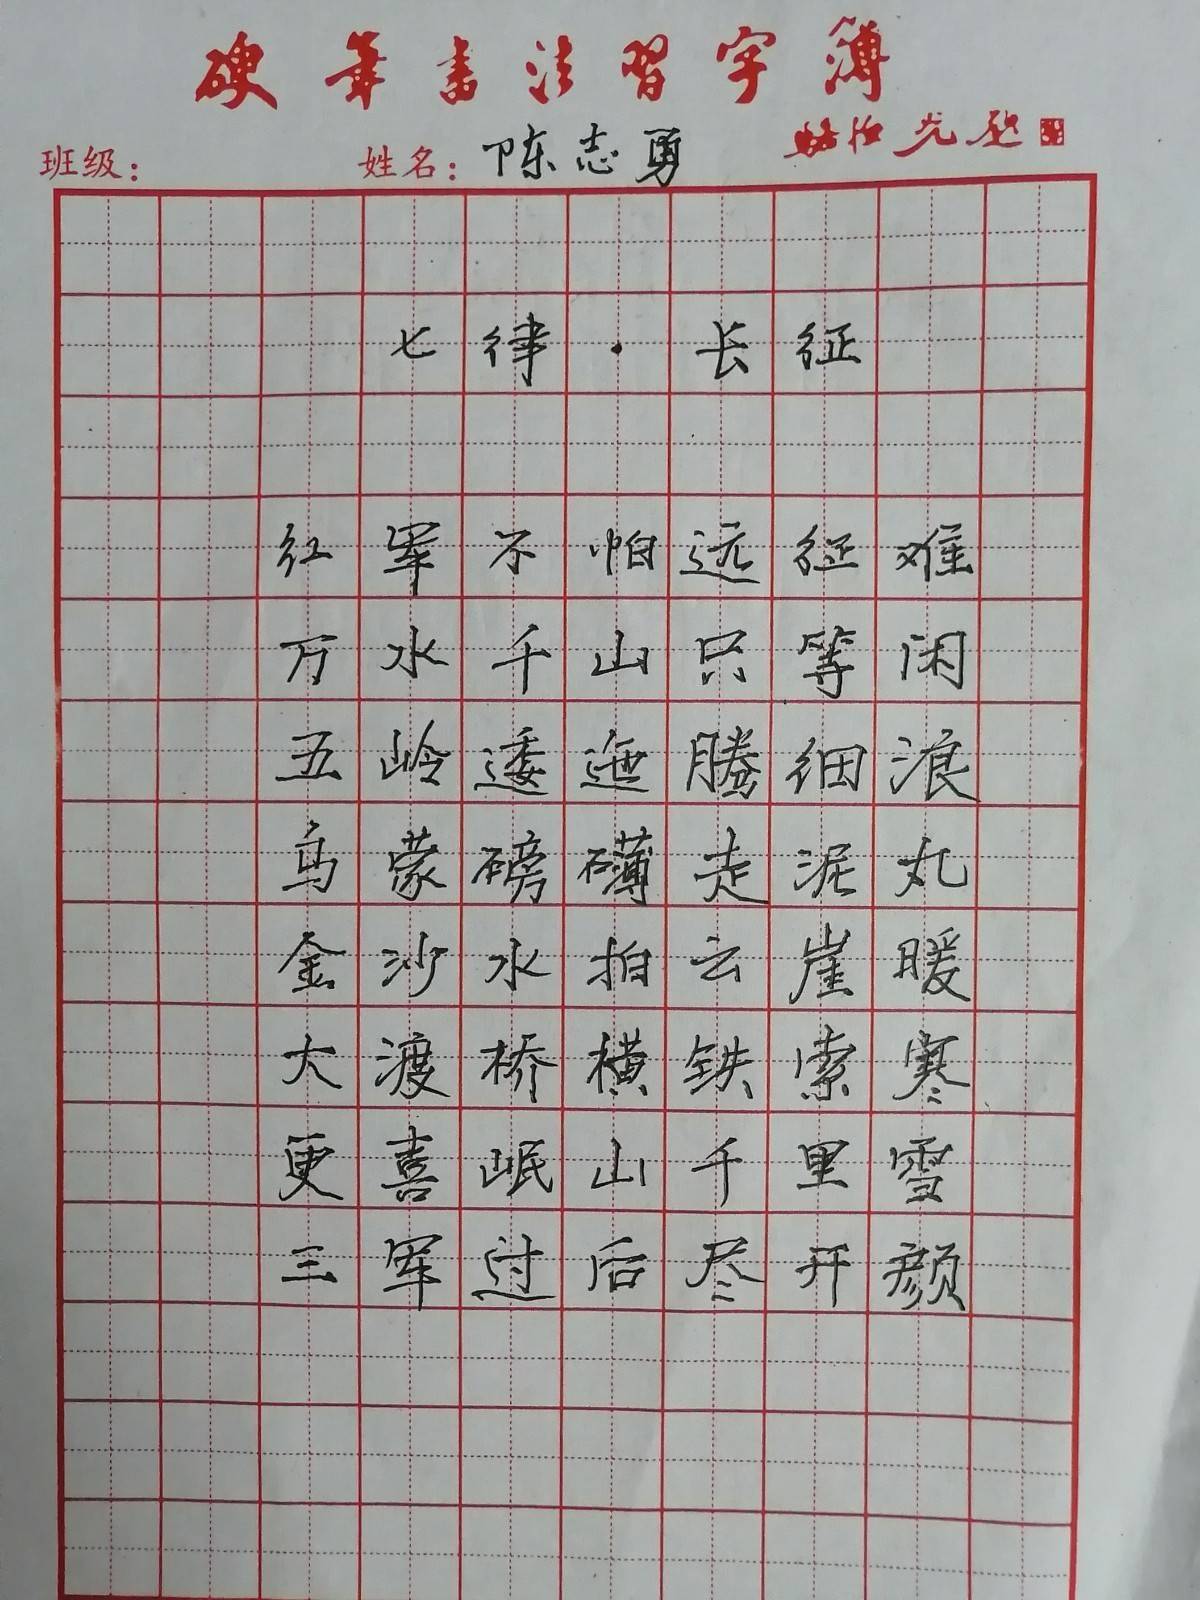 硬笔书法习字簿
班级： 姓名：陈志勇
七律·长征
红军不怕远征难
万水千山只等闲
五岭逶迤腾细浪
乌蒙磅礴走泥丸
金沙水拍云崖暖
大渡桥横铁索寒
更喜岷山千里雪
三军过后尽开颜